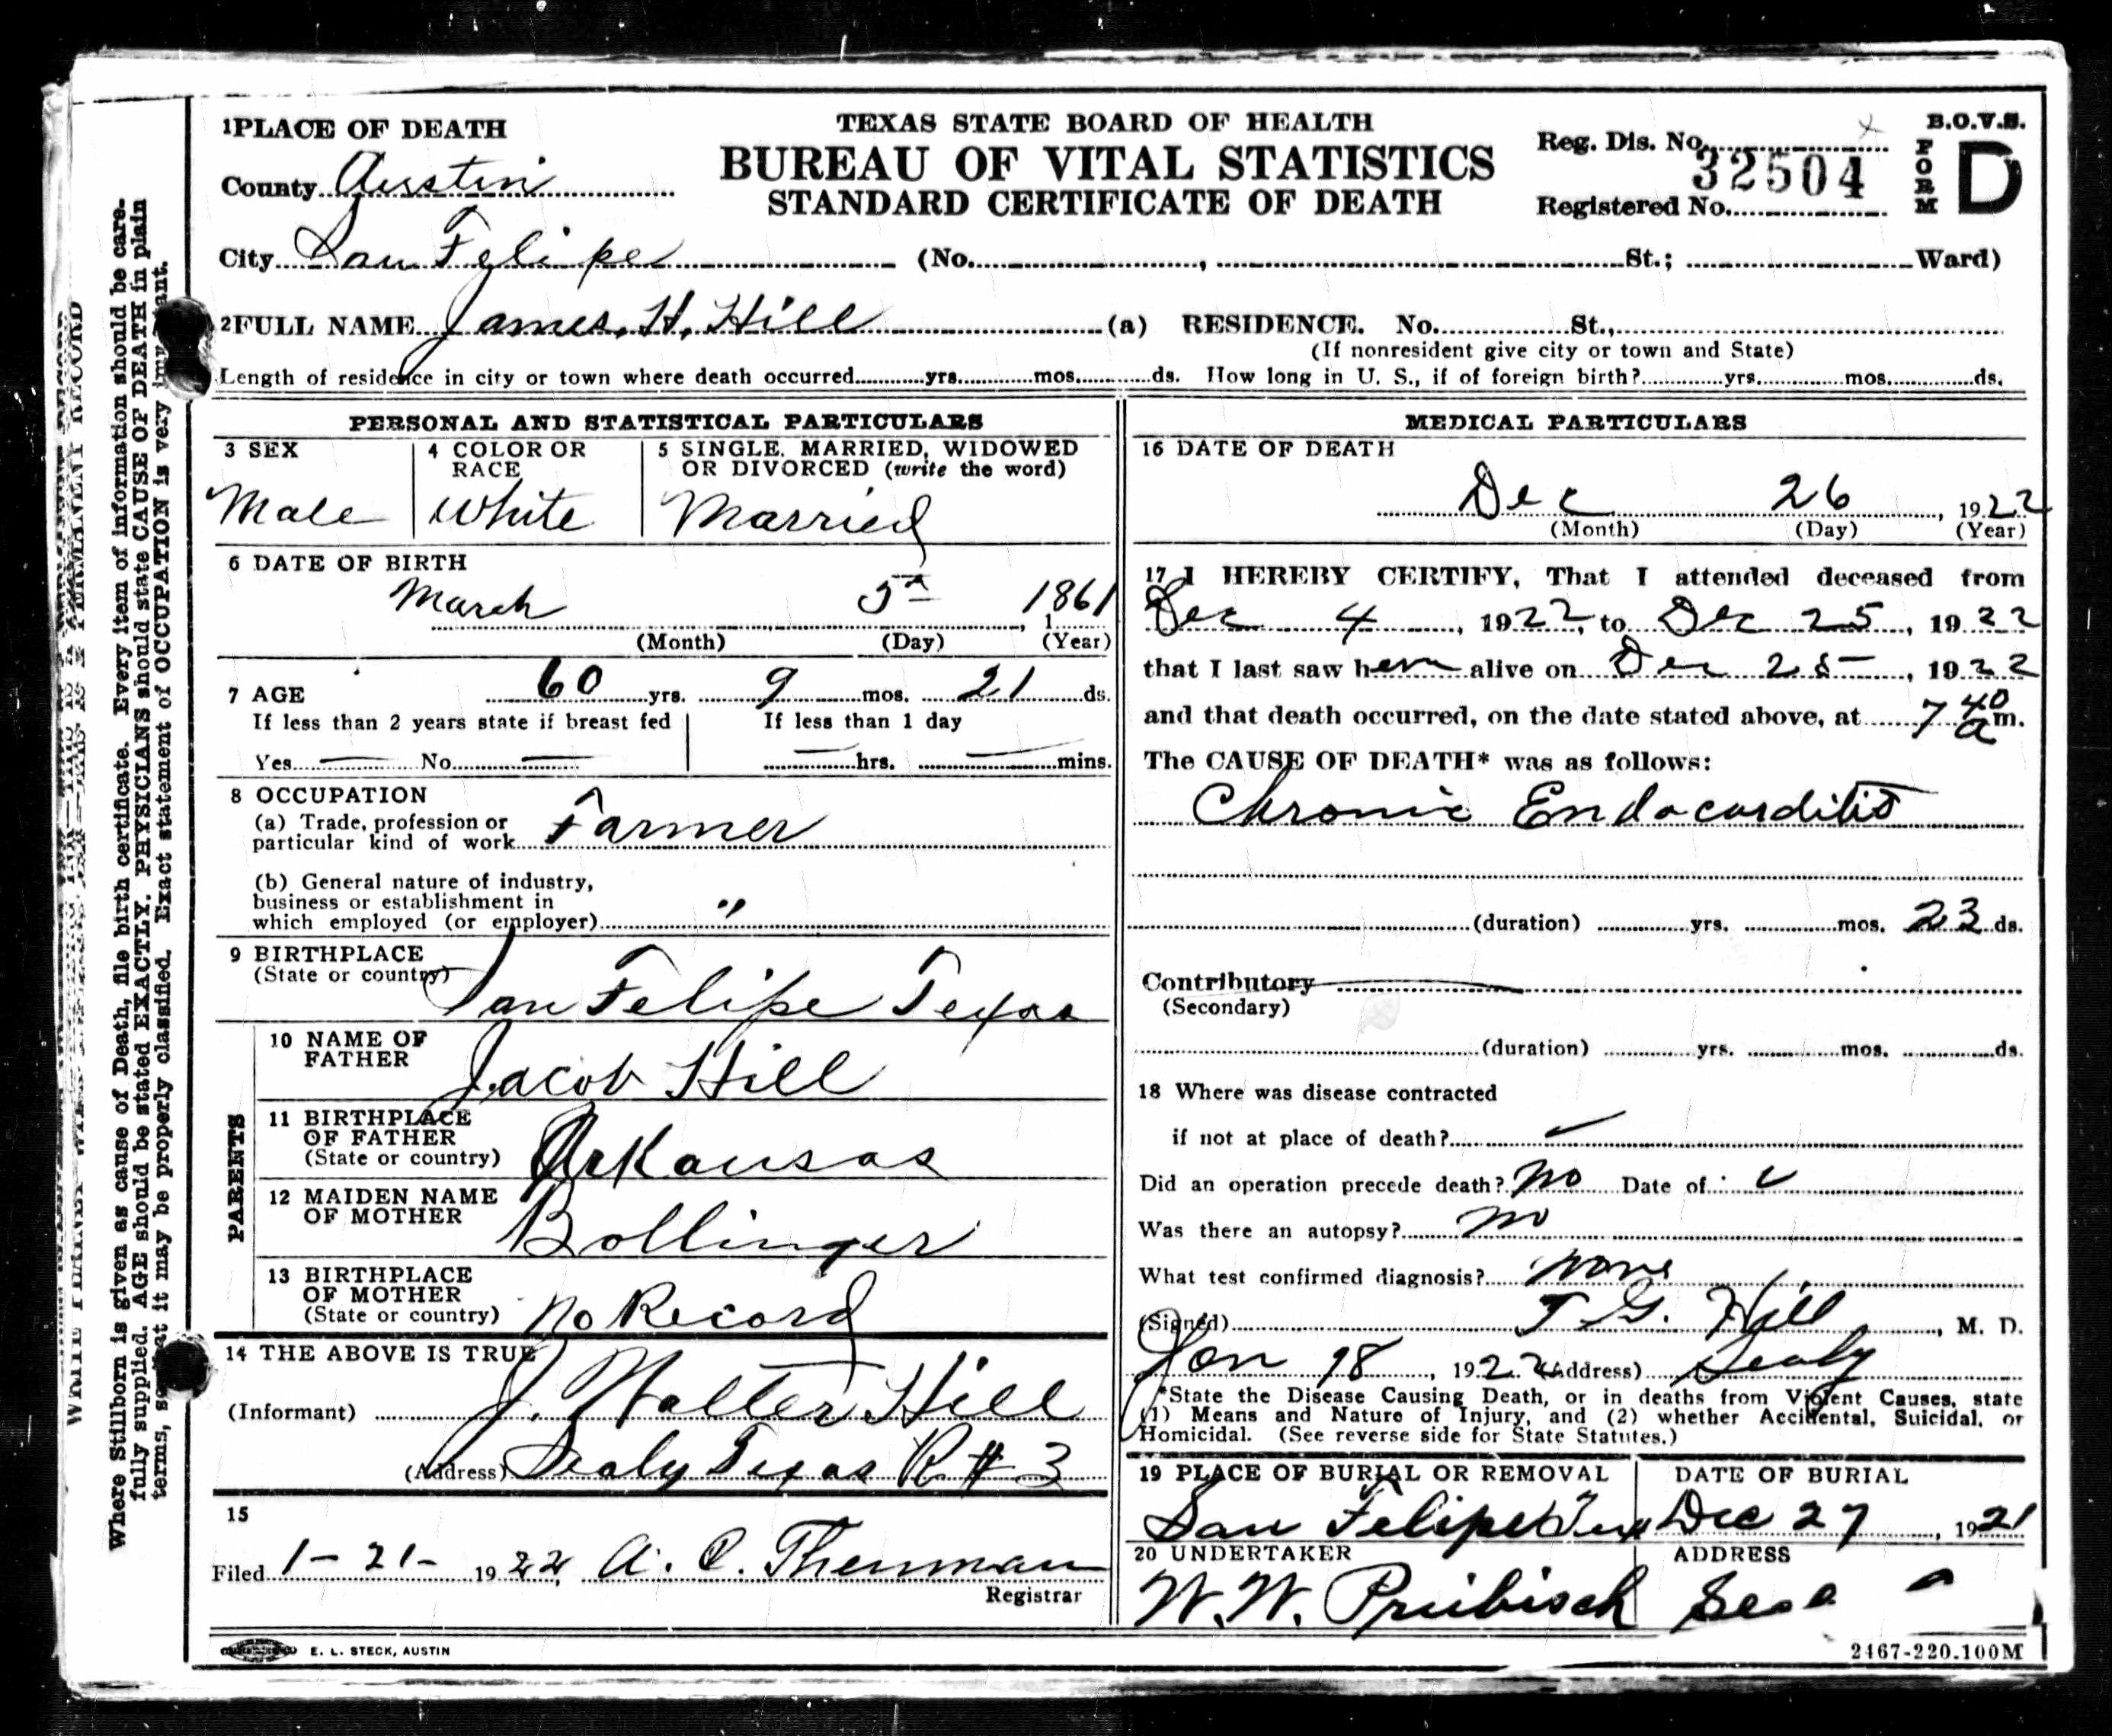 1 PLACE OF DEATH
County Austin
TEXAS STATE BOARD OF HEALTH
BUREAU OF VITAL STATISTICS
STANDARD CERTIFICATE OF DEATH
Reg. Dis. No.
32504
Registered No.
B.O.V.S.
FORM D
City San Felipe (No. , St.; Ward)
2 FULL NAME James. H. Hill (a) RESIDENCE. No. St.,
(If nonresident give city or town and State)
Length of residence in city or town where death occurred yrs. mos. ds. How long in U. S., if of foreign birth? yrs. mos. ds.
PERSONAL AND STATISTICAL PARTICULARS
3 SEX
Male
4 COLOR OR RACE
White
5 SINGLE, MARRIED, WIDOWED
OR DIVORCED (write the word)
Married
6 DATE OF BIRTH
March 5th 1861
(Month) (Day) (Year)
7 AGE 60 yrs. 9 mos. 21 ds.
If less than 2 years state if breast fed If less than 1 day
Yes — No — — hrs. — mins.
8 OCCUPATION
(a) Trade, profession or
particular kind of work Farmer
(b) General nature of industry,
business or establishment in
which employed (or employer) "
9 BIRTHPLACE
(State or country) San Felipe Texas
PARENTS
10 NAME OF
FATHER Jacob Hill
11 BIRTHPLACE
OF FATHER
(State or country) Arkansas
12 MAIDEN NAME
OF MOTHER Bollinger
13 BIRTHPLACE
OF MOTHER
(State or country) No Record
14 THE ABOVE IS TRUE
(Informant) J. Walter Hill
(Address) Sealy Texas R # 3
15
Filed 1-21- 1922, A. C. Thenman
Registrar
E. L. STECK, AUSTIN
MEDICAL PARTICULARS
16 DATE OF DEATH
Dec 26, 1922
(Month) (Day) (Year)
17 I HEREBY CERTIFY, That I attended deceased from
Dec 4, 1922, to Dec 25, 1922
that I last saw him alive on Dec 25, 1922
and that death occurred, on the date stated above, at 7 40 a m.
The CAUSE OF DEATH* was as follows:
Chronic Endocarditis
(duration) yrs. mos. 23 ds.
Contributory
(Secondary)
(duration) yrs. mos. ds.
18 Where was disease contracted
if not at place of death?
Did an operation precede death? No Date of
Was there an autopsy? No
What test confirmed diagnosis? None
(Signed) T. G. Hill, M. D.
Jan 18, 1922 (Address) Sealy
*State the Disease Causing Death, or in deaths from Violent Causes, state
(1) Means and Nature of Injury, and (2) whether Accidental, Suicidal, or
Homicidal. (See reverse side for State Statutes.)
19 PLACE OF BURIAL OR REMOVAL
San Felipe Tex
DATE OF BURIAL
Dec 27, 1921
20 UNDERTAKER
W. W. Pruibisch
ADDRESS
2467-220.100M
WRITE PLAINLY WITH UNFADING INK—THIS IS A PERMANENT RECORD
Where Stillborn is given as cause of Death, file birth certificate. Every item of information should be care-
fully supplied. AGE should be stated EXACTLY. PHYSICIANS should state CAUSE OF DEATH in plain
terms, so that it may be properly classified. Exact statement of OCCUPATION is very important.